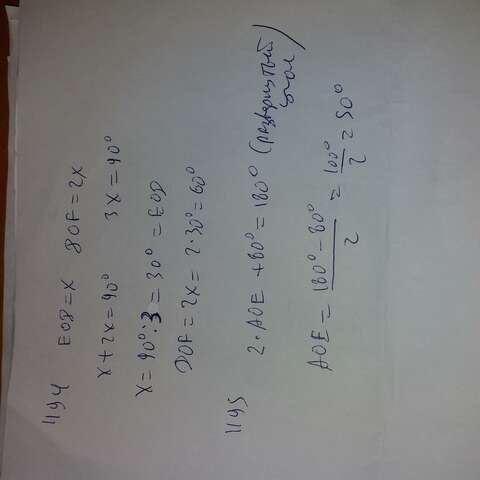 1194 EOD=x DOF=2x
x+2x=90° 3x=90°
x=90°:3=30°=EOD
DOF=2x=2·30°=60°
1195
2·AOE+80°=180° (развернутый
угол)
AOE=180°-80°/2=100°/2=50°